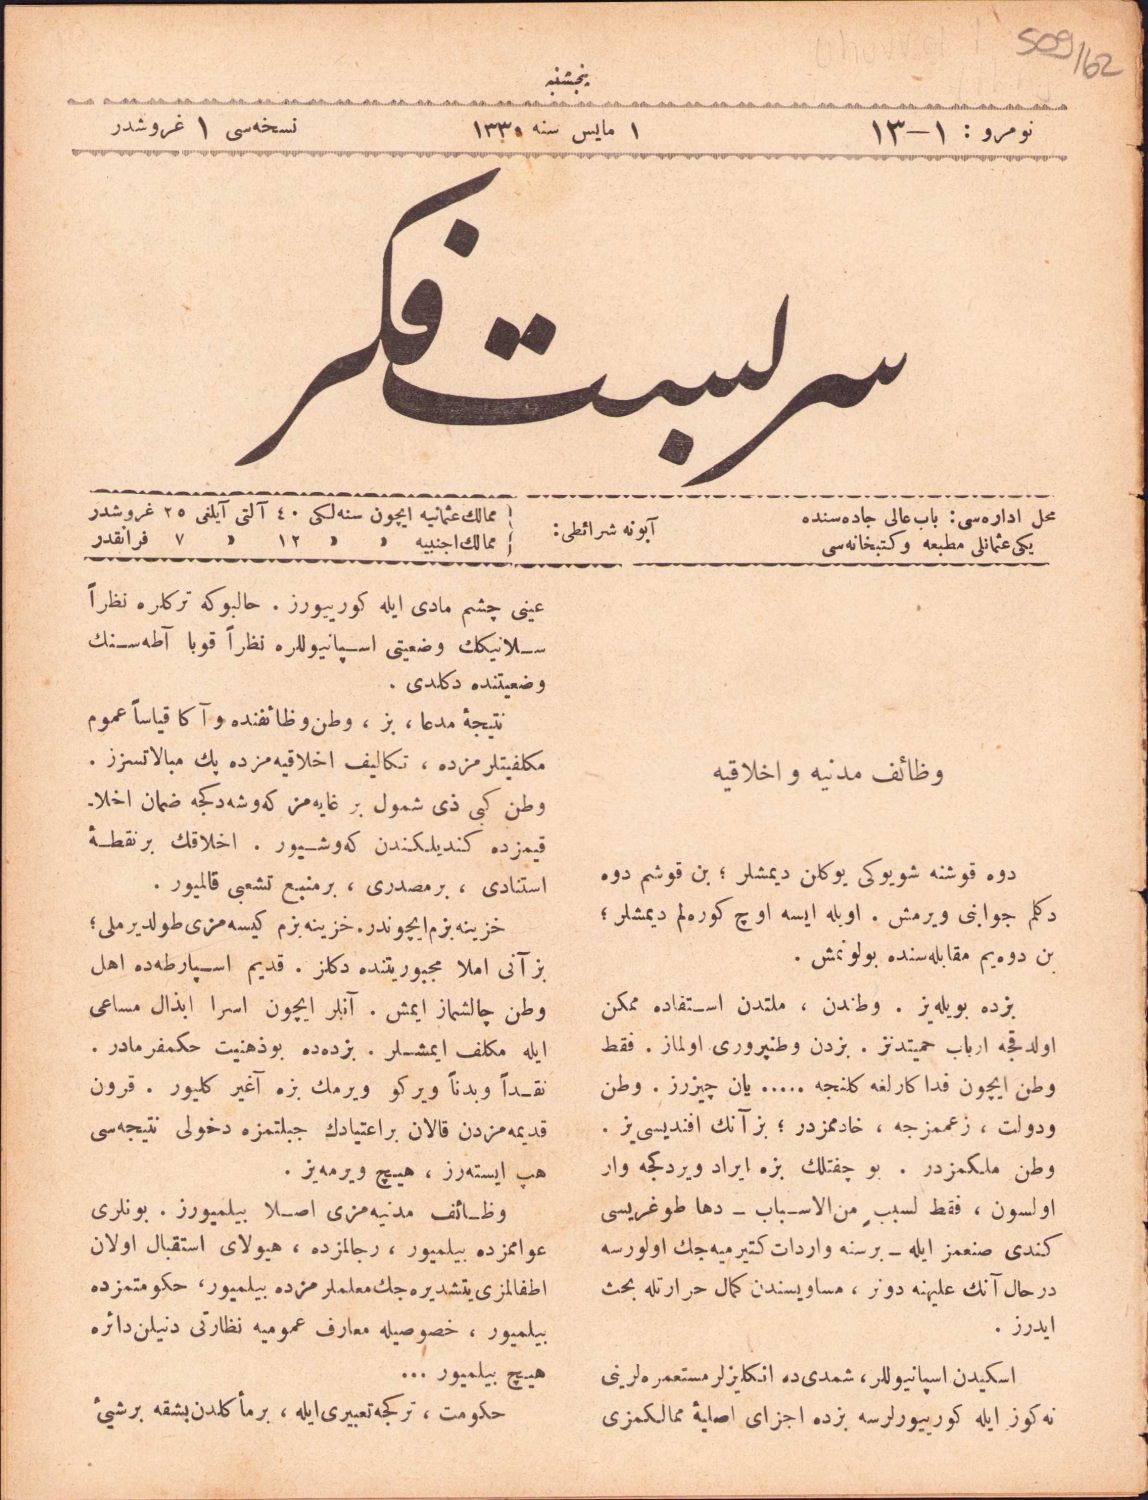 509/162
پنجشنبه
نومرو : ١-١٣
١ مايس سنه ١٣٣٠
نسخه‌سى ١ غروشدر
سربست فكر
محل اداره‌سى: باب عالى جاده‌سنده
يكى عثمانلى مطبعه وكتبخانه‌سى
آبونه شرائطى:
ممالك عثمانيه ايچون سنه‌لكى ٤٠ آلتى آيلغى ٢٥ غروشدر
ممالك اجنبيه » » ١٢ » ٧ فرانقدر
وظائف مدنيه و اخلاقيه
دوه قوشنه شويوكى يوكلن ديمشلر ؛ بن قوشم دوه
دكلم جوابنى ويرمش . اويله ايسه اوچ كوره‌لم ديمشلر ؛
بن دوه‌يم مقابله‌سنده بولونمش .
بزده بويله‌يز . وطندن ، ملتدن استفاده ممكن
اولدقجه ارباب حميتدنز . بزدن وطنپرورى اولماز . فقط
وطن ايچون فداكارلغه كلنجه ..... يان چيزرز . وطن
ودولت ، زعممزجه ، خادممزدر ؛ بز آنك افنديسى‌يز .
وطن ملكمزدر . بو چفتلك بزه ايراد ويردكجه وار
اولسون ، فقط لسبب من‌الاسباب ـ دها طوغريسى
كندى صنعمز ايله ـ برسنه واردات كتيرميه‌جك اولورسه
درحال آنك عليهنه دونر ، مساويسندن كمال حرارتله بحث
ايدرز .
اسكيدن اسپانيوللر، شمدى‌ده انكليزلر مستعمره‌لرينى
نه كوز ايله كورييورلرسه بزده اجزاى اصليۀ ممالكمزى
عينى چشم مادى ايله كورييورز . حالبوكه تركلره نظراً
سلانيكك وضعيتى اسپانيوللره نظراً قوبا آطه‌سنك
وضعيتنده دكلدى .
نتيجۀ مدعا ، بز ، وطن وظائفنده و آكا قياساً عموم
مكلفيتلرمزده ، تكاليف اخلاقيه‌مزده پك مبالاتسزز .
وطن كبى ذى شمول بر غايه‌مز كه‌وشه‌دكجه ضمان اخلا-
قيمزده كنديلكندن كه‌وشيور . اخلاقك برنقطۀ
استنادى ، برمصدرى ، برمنبع تشعبى قالميور .
خزينه بزم ايچوندر. خزينه بزم كيسه‌مزى طولديرملى؛
بز آنى املا مجبوريتنده دكلز . قديم اسپارطه‌ده اهل
وطن چالشماز ايمش . آنلر ايچون اسرا ابذال مساعى
ايله مكلف ايمشلر . بزده‌ده بوذهنيت حكمفرمادر .
نقداً وبدناً ويركو ويرمك بزه آغير كليور . قرون
قديمه‌مزدن قالان براعتيادك جبلتمزه دخولى نتيجه‌سى
هپ ايسته‌رز ، هيچ ويرمه‌يز .
وظائف مدنيه‌مزى اصلا بيلميورز . بونلرى
عواممزده بيلميور ، رجالمزده ، هيولاى استقبال اولان
اطفالمزى يتشديره‌جك معلملرمزده بيلميور، حكومتمزده
بيلميور ، خصوصيله معارف عموميه نظارتى دنيلن دائره
هيچ بيلميور ...
حكومت ، تركجه تعبيرى ايله ، برمأكلدن بشقه برشيئ